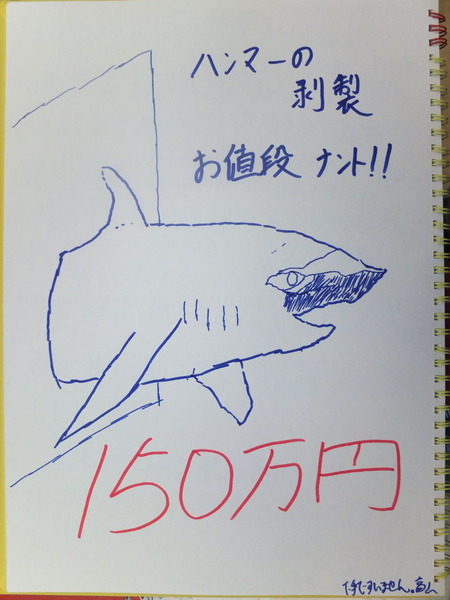 ハンマーの
剥製
お値段 ナント!!
150万円
下手ですいません。高ム